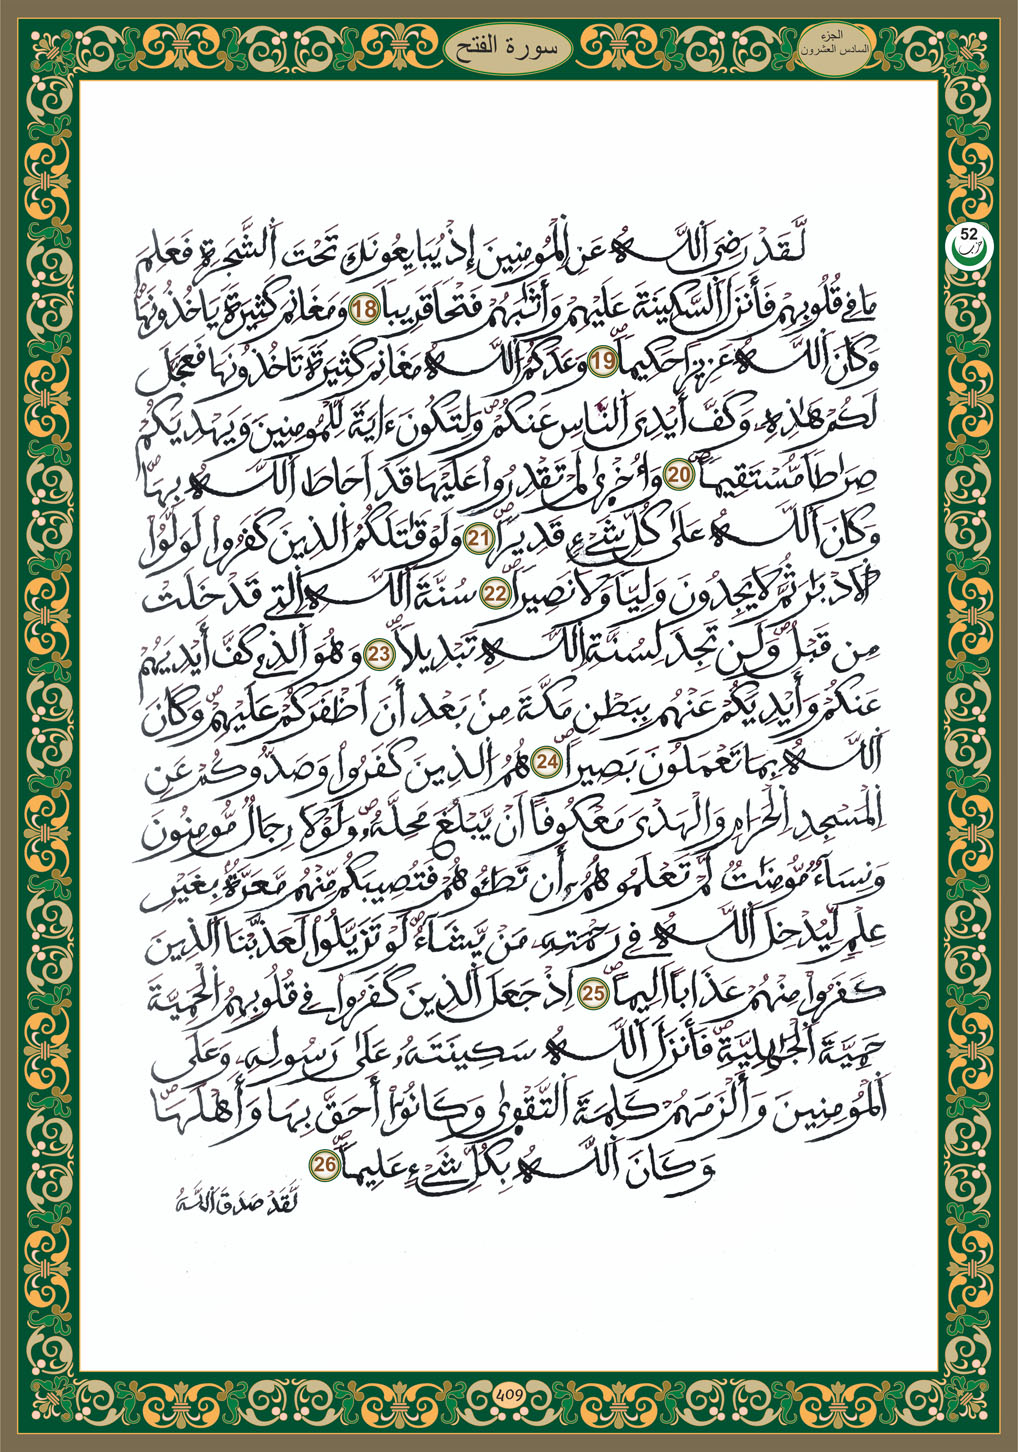 سورة الفتح
الجزء
السادس العشرون
52
حزب
لَّقَدْ رَضِىَ اَ۬للَّهُ عَنِ اِ۬لْمُومِنِينَ إِذْ يُبَايِعُونَكَ تَحْتَ اَ۬لشَّجَرَةِ فَعَلِمَ
مَا فِے قُلُوبِهِمْ فَأَنزَلَ اَ۬لسَّكِينَةَ عَلَيْهِمْ وَأَثَٰبَهُمْ فَتْحاً قَرِيباً 18 وَمَغَانِمَ كَثِيرَةً يَاخُذُونَهَا
وَكَانَ اَ۬للَّهُ عَزِيزاً حَكِيماً 19 وَعَدَكُمُ اُ۬للَّهُ مَغَانِمَ كَثِيرَةً تَاخُذُونَهَا فَعَجَّلَ
لَكُمْ هَٰذِهِۦ وَكَفَّ أَيْدِىَ اَ۬لنَّاسِ عَنكُمْ وَلِتَكُونَ ءَايَةً لِّلْمُومِنِينَ وَيَهْدِيَكُمْ
صِرَٰطاً مُّسْتَقِيماً 20 وَأُخْر۪ىٰ لَمْ تَقْدِرُواْ عَلَيْهَا قَدَ اَحَاطَ اَ۬للَّهُ بِهَا
وَكَانَ اَ۬للَّهُ عَلَىٰ كُلِّ شَےْءٖ قَدِيراً 21 وَلَوْ قَٰتَلَكُمُ اُ۬لذِينَ كَفَرُواْ لَوَلَّوُاْ
اُ۬لَادْبَٰرَ ثُمَّ لَا يَجِدُونَ وَلِيّاً وَلَا نَصِيراً 22 سُنَّةَ اَ۬للَّهِ اِ۬لتِے قَدْ خَلَتْ
مِن قَبْلُ وَلَن تَجِدَ لِسُنَّةِ اِ۬للَّهِ تَبْدِيلاً 23 وَهُوَ اَ۬لذِے كَفَّ أَيْدِيَهُمْ
عَنكُمْ وَأَيْدِيَكُمْ عَنْهُم بِبَطْنِ مَكَّةَ مِنۢ بَعْدِ أَنَ اَظْفَرَكُمْ عَلَيْهِمْ وَكَانَ
اَ۬للَّهُ بِمَا تَعْمَلُونَ بَصِيراً 24 هُمُ اُ۬لذِينَ كَفَرُواْ وَصَدُّوكُمْ عَنِ
اِ۬لْمَسْجِدِ اِ۬لْحَرَامِ وَالْهَدْىَ مَعْكُوفاً اَنْ يَّبْلُغَ مَحِلَّهُۥ وَلَوْلَا رِجَالٌ مُّومِنُونَ
وَنِسَآءٌ مُّومِنَٰتٌ لَّمْ تَعْلَمُوهُمُۥٓ أَن تَطَـُٔوهُمْ فَتُصِيبَكُم مِّنْهُم مَّعَرَّةٌۢ بِغَيْرِ
عِلْمٍ لِّيُدْخِلَ اَ۬للَّهُ فِے رَحْمَتِهِۦ مَنْ يَّشَآءُ لَوْ تَزَيَّلُواْ لَعَذَّبْنَا اَ۬لذِينَ
كَفَرُواْ مِنْهُمْ عَذَاباً اَلِيماً 25 اِذْ جَعَلَ اَ۬لذِينَ كَفَرُواْ فِے قُلُوبِهِمُ اُ۬لْحَمِيَّةَ
حَمِيَّةَ اَ۬لْجَٰهِلِيَّةِ فَأَنزَلَ اَ۬للَّهُ سَكِينَتَهُۥ عَلَىٰ رَسُولِهِۦ وَعَلَى
اَ۬لْمُومِنِينَ وَأَلْزَمَهُمْ كَلِمَةَ اَ۬لتَّقْو۪ىٰ وَكَانُوٓاْ أَحَقَّ بِهَا وَأَهْلَهَا
وَكَانَ اَ۬للَّهُ بِكُلِّ شَےْءٍ عَلِيماً 26
لَّقَدْ صَدَقَ اَ۬للَّهُ
409